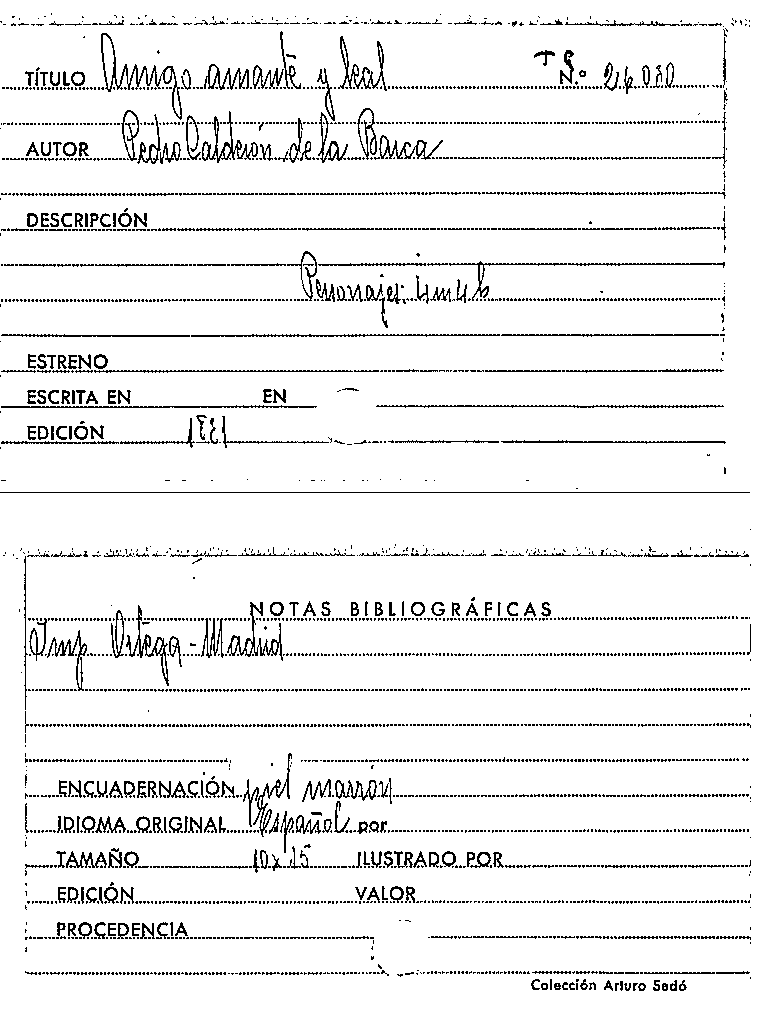 TÍTULO Amigo amante y leal N.º 26080
AUTOR Pedro Calderón de la Barca
DESCRIPCIÓN
Personajes: 4 m 4 h
ESTRENO
ESCRITA EN EN
EDICIÓN
NOTAS BIBLIOGRÁFICAS
Imp. Ortega - Madrid
ENCUADERNACIÓN piel marrón
IDIOMA ORIGINAL Español por
TAMAÑO 10 x 15 ILUSTRADO POR
EDICIÓN VALOR
PROCEDENCIA
Colección Arturo Sedó